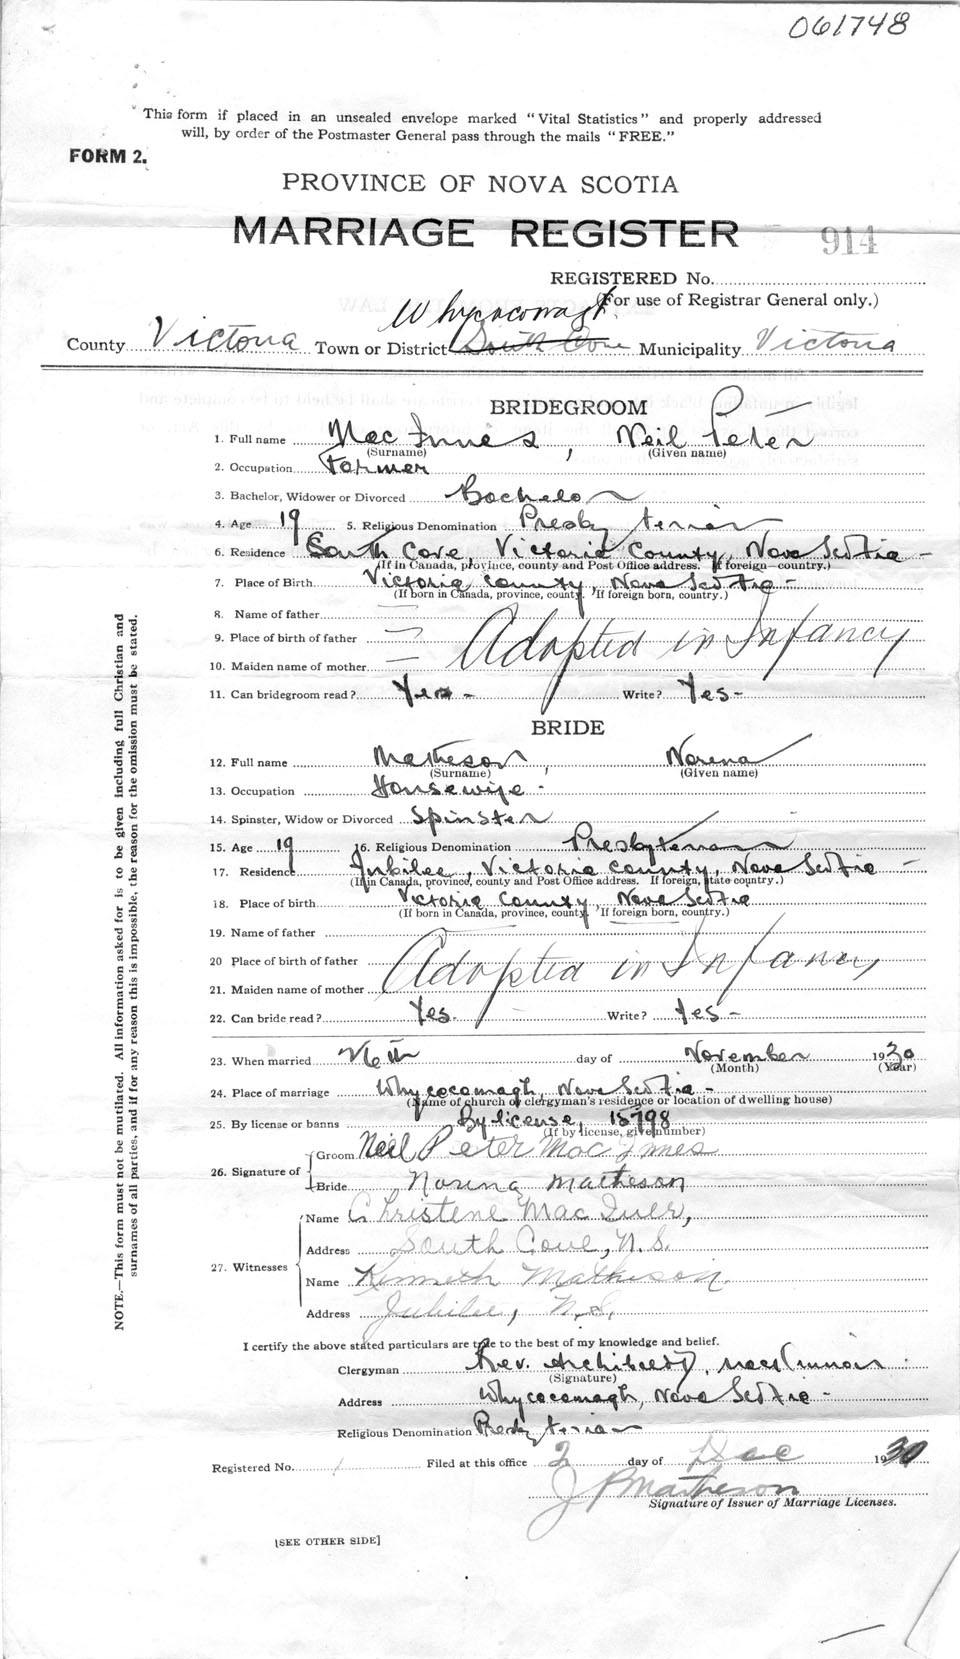 061748
This form if placed in an unsealed envelope marked "Vital Statistics" and properly addressed
will, by order of the Postmaster General pass through the mails "FREE."
FORM 2.
PROVINCE OF NOVA SCOTIA
MARRIAGE REGISTER 914
REGISTERED No.
(For use of Registrar General only.)
Whycocomagh
County Victoria Town or District South Cove Municipality Victoria
BRIDEGROOM
1. Full name Mac Innes, Neil Peter
(Surname) (Given name)
2. Occupation Farmer
3. Bachelor, Widower or Divorced Bachelor
4. Age 19 5. Religious Denomination Presbyterian
6. Residence South Cove, Victoria County, Nova Scotia -
(If in Canada, province, county and Post Office address. If foreign country.)
7. Place of Birth Victoria County, Nova Scotia -
(If born in Canada, province, county. If foreign born, country.)
8. Name of father
9. Place of birth of father Adopted in Infancy
10. Maiden name of mother
11. Can bridegroom read? Yes - Write? Yes -
BRIDE
12. Full name Matheson, Norena
(Surname) (Given name)
13. Occupation Housewife -
14. Spinster, Widow or Divorced Spinster
15. Age 19 16. Religious Denomination Presbyterian
17. Residence Jubilee, Victoria County, Nova Scotia -
(If in Canada, province, county and Post Office address. If foreign, state country.)
18. Place of birth Victoria County, Nova Scotia
(If born in Canada, province, county. If foreign born, country.)
19. Name of father
20 Place of birth of father Adopted in Infancy
21. Maiden name of mother
22. Can bride read? Yes. Write? Yes -
23. When married day of November 1930
(Month) (Year)
24. Place of marriage Whycocomagh, Nova Scotia -
(Name of church or clergyman's residence or location of dwelling house)
25. By license or banns By license, 15798
(If by license, give number)
26. Signature of
Groom Neil Peter Mac Innes
Bride Norena Matheson
27. Witnesses
Name Christene Mac Iver,
Address South Cove, N.S.
Name Kenneth Matheson.
Address Jubilee, N.S.
I certify the above stated particulars are true to the best of my knowledge and belief.
Clergyman Rev. Archibald MacKinnon
(Signature)
Address Whycocomagh, Nova Scotia -
Religious Denomination Presbyterian
Registered No. 1 Filed at this office 2 day of Dec 1930
J P Matheson
Signature of Issuer of Marriage Licenses.
[SEE OTHER SIDE]
NOTE.—This form must not be mutilated. All information asked for is to be given including full Christian and
surnames of all parties, and if for any reason this is impossible, the reason for the omission must be stated.